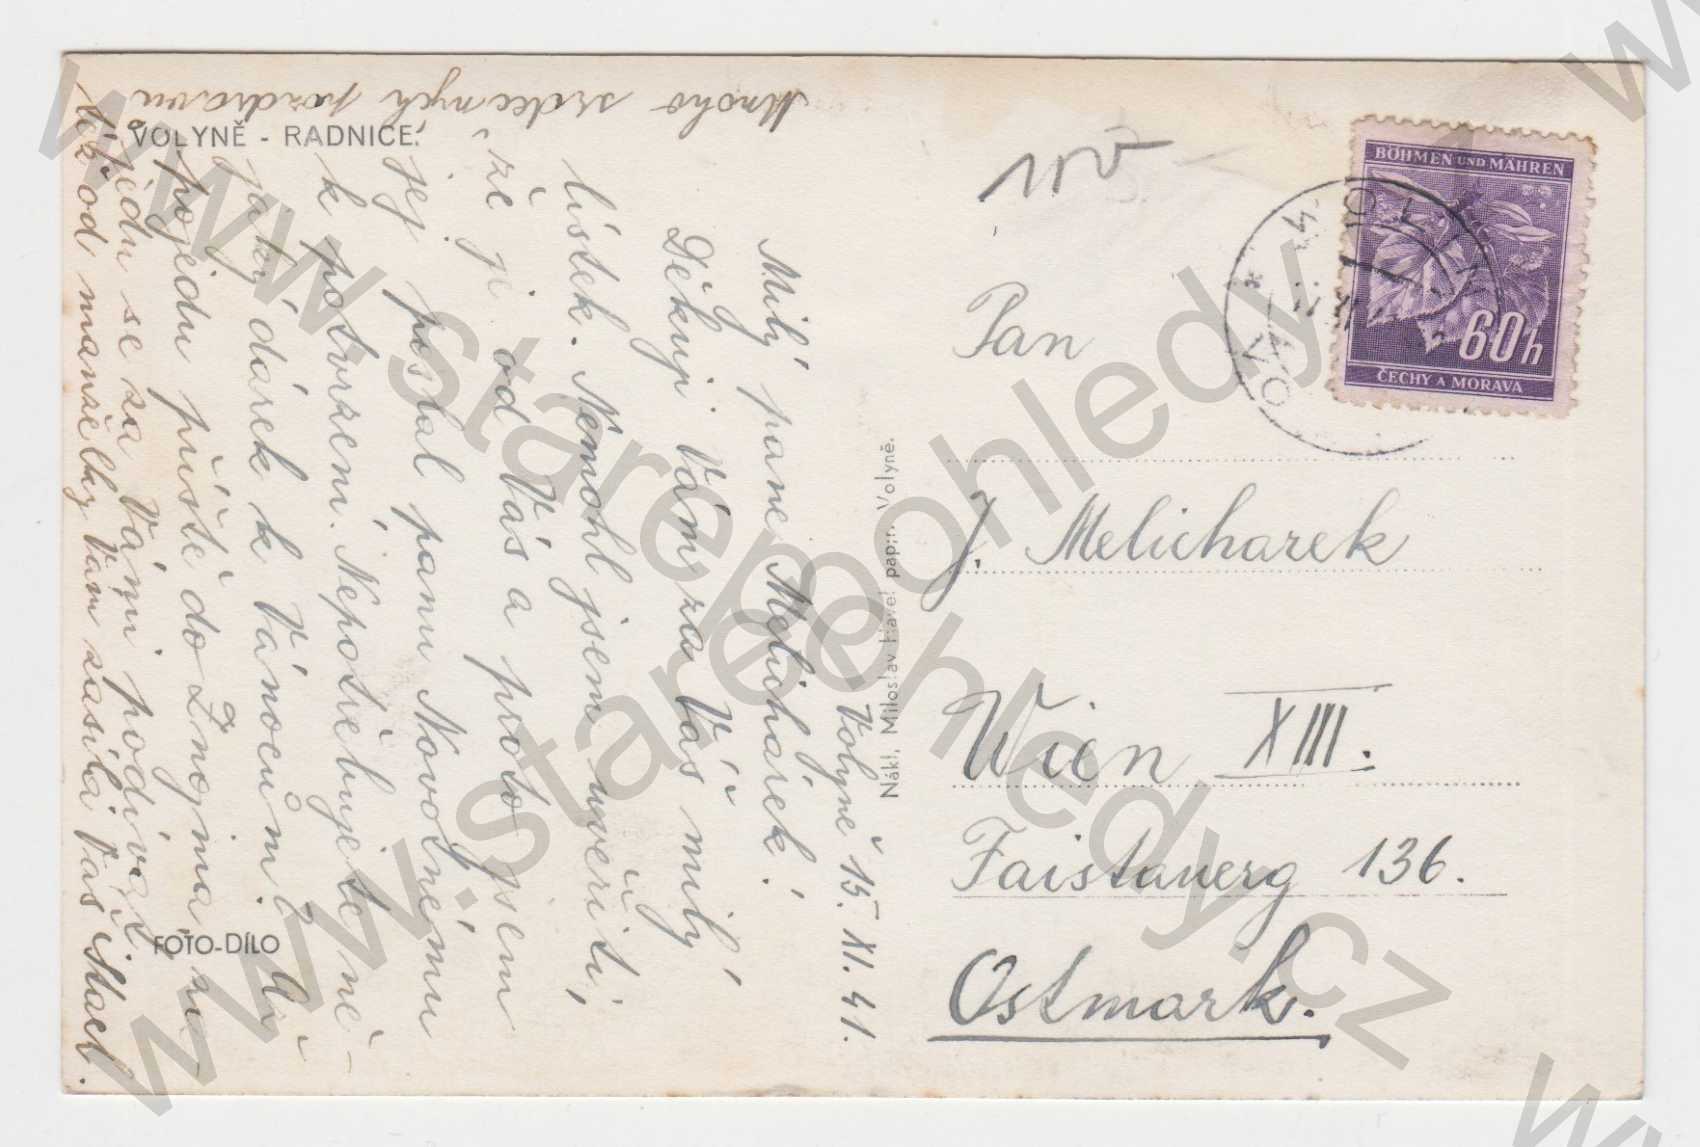 VOLYNĚ - RADNICE.
FOTO-DÍLO
Nákl. Miloslav Havel papír. Volyně.
Volyně 15. XI. 41.
Milý pane Melichárek!
Děkuji Vám za Váš milý
lístek. Nemohl jsem uvěřiti,
že je od Vás a proto jsem
jej poslal panu Novotnému
k potvrzení. Nepotřebujete ně-
jaký dárek k Vánocům? Až
pojedu příště do Znojma za-
jedu se za Vámi podívat.
též od manželky Vám zasílá Váš
Mnoho srdečných pozdravů
Pan
J. Melicharek
Wien XIII.
Faistauerg 136.
Ostmark.
BÖHMEN UND MÄHREN
60h
ČECHY A MORAVA
www.starepohledy.cz
www.starepohledy.cz